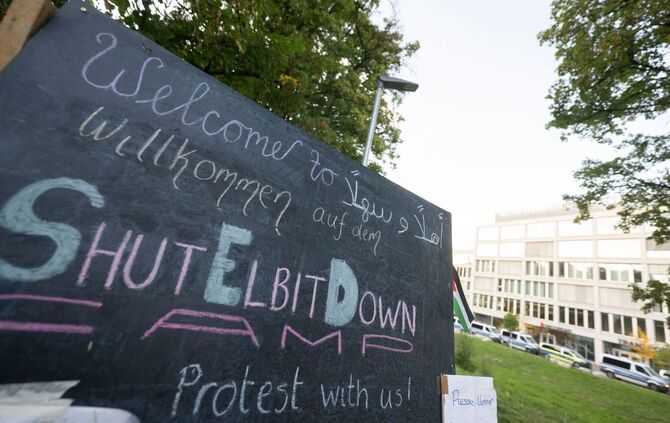 Welcome to
أهلاً و سهلاً
Willkommen auf dem
SHUTELBITDOWN
CAMP
Protest with us!